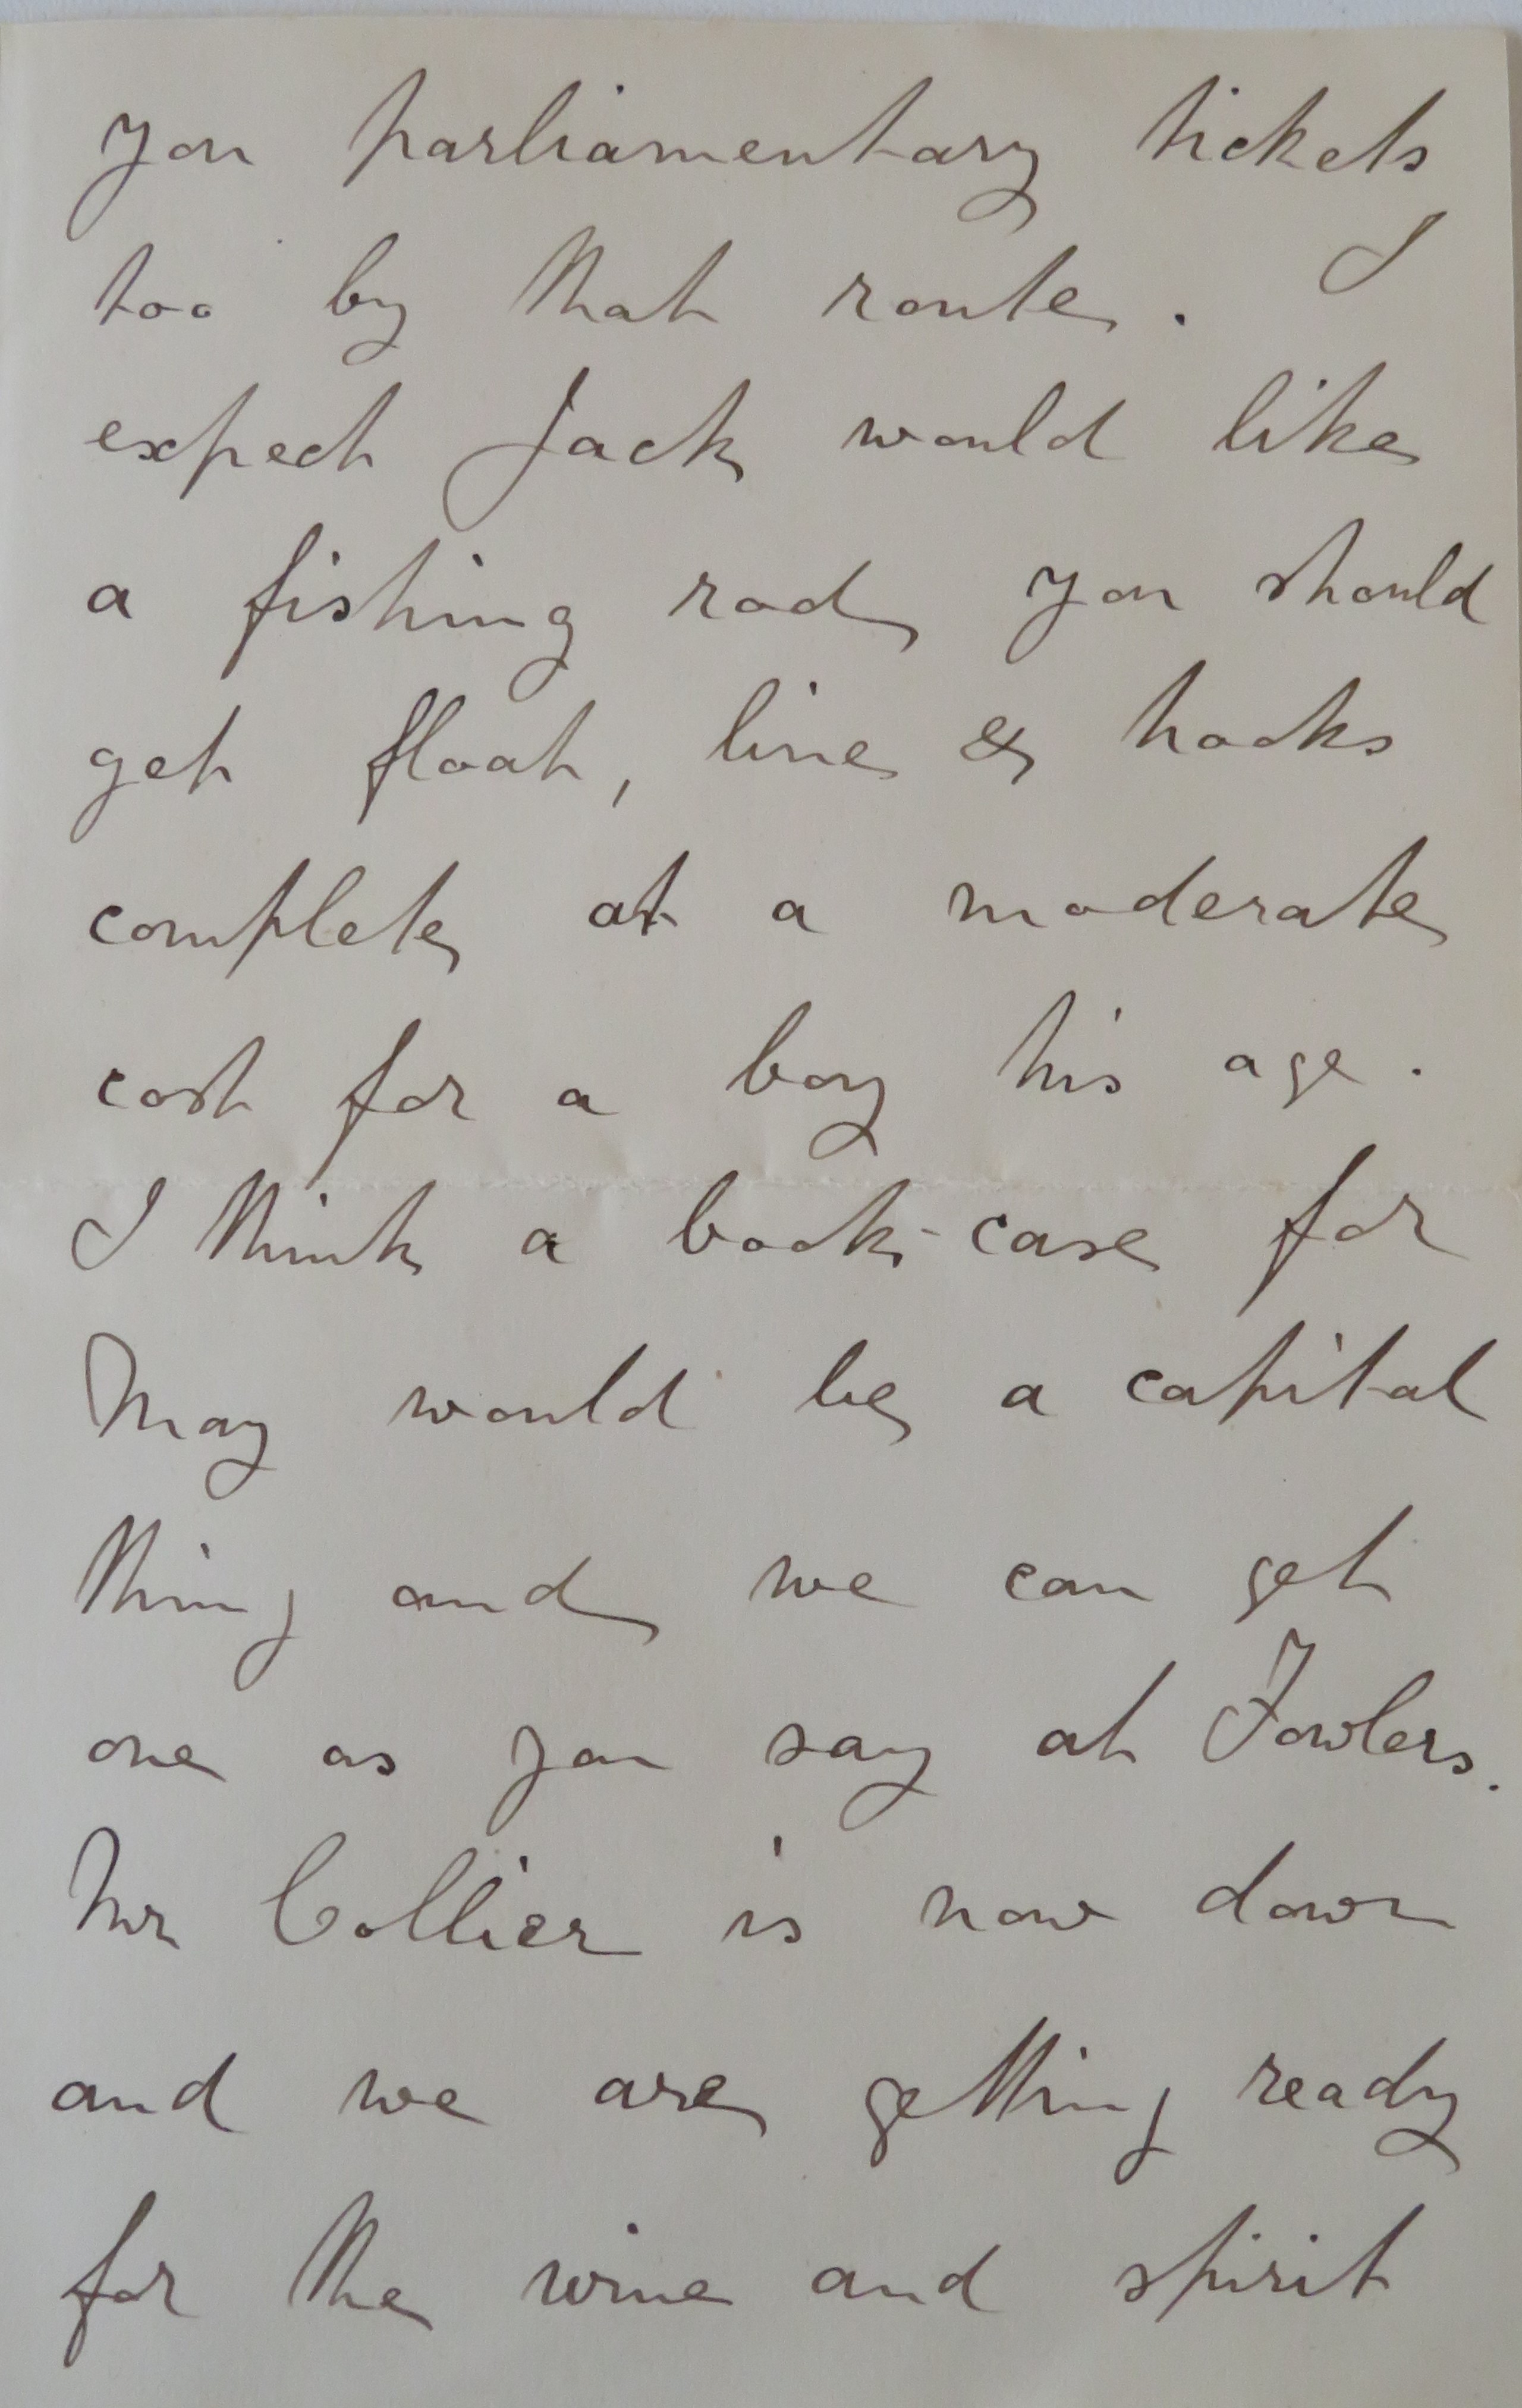 you parliamentary tickets
too by that route. I
expect Jack would like
a fishing rod you should
get float, line & hooks
complete at a moderate
cost for a boy his age.
I think a book-case for
May would be a capital
thing and we can get
one as you say at Fowlers.
Mr Collier is now down
and we are getting ready
for the wine and spirit